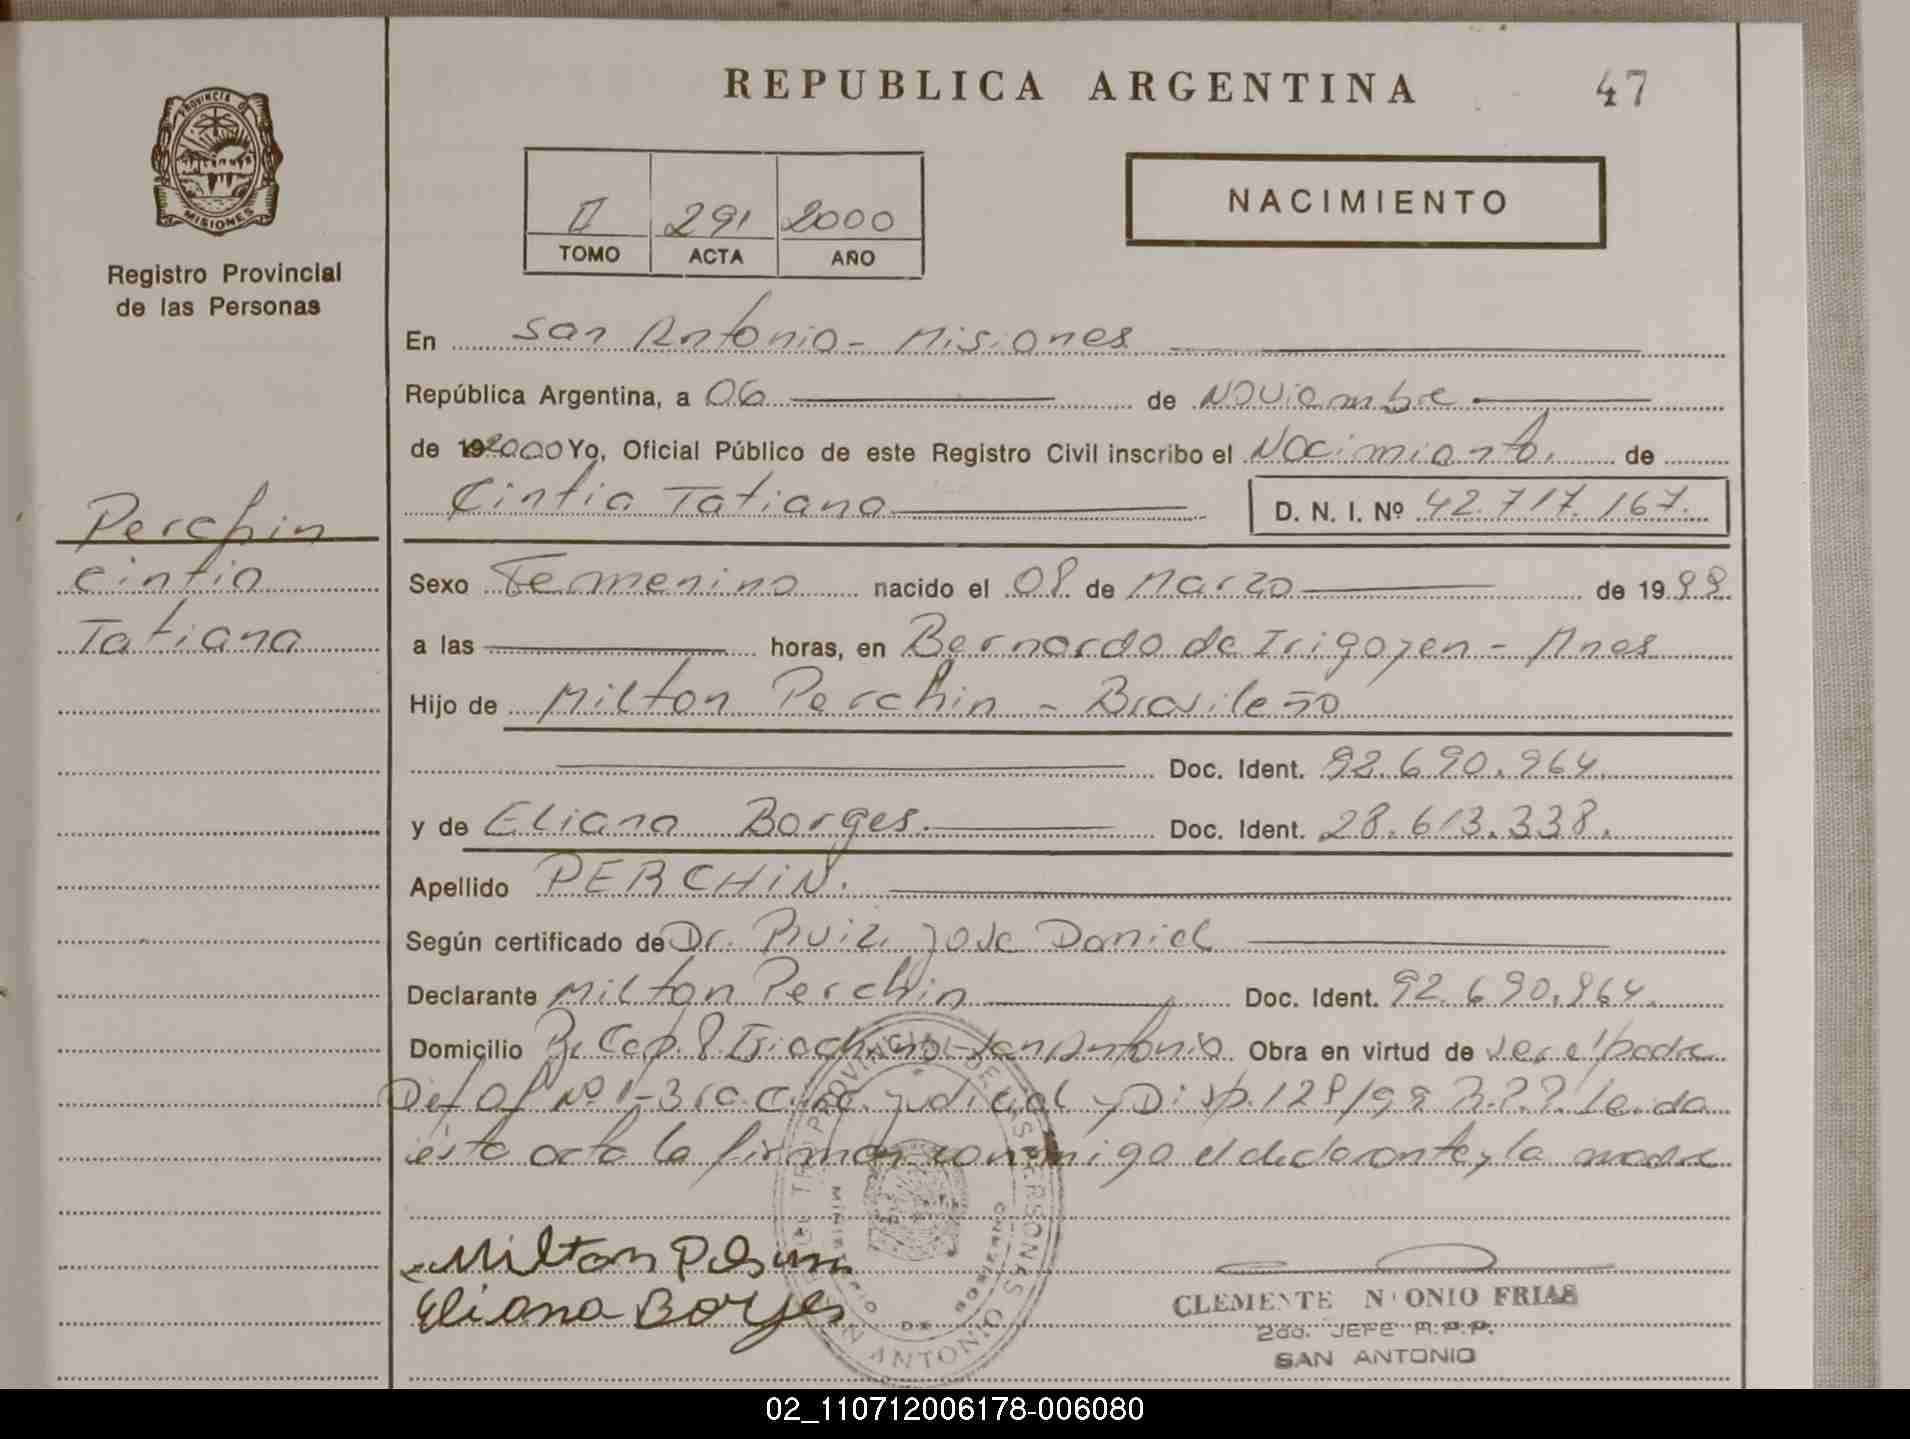 REPUBLICA ARGENTINA
47
PROVINCIA D
MISIONES
Registro Provincial
de las Personas
NACIMIENTO
II 291 2000
TOMO ACTA AÑO
En San Antonio - Misiones
República Argentina, a 06 de Noviembre
de 192000 Yo, Oficial Público de este Registro Civil inscribo el Nacimiento. de
Cintia Tatiana D. N. I. Nº 42.717.167.
Perchin
Cintia
Tatiana
Sexo Femenino nacido el 08 de Marzo de 1999
a las horas, en Bernardo de Irigoyen - Mnes
Hijo de Milton Perchin - Brasileño
Doc. Ident. 92.690.964.
y de Eliana Borges. Doc. Ident. 28.613.338.
Apellido PERCHIN.
Según certificado de Dr. Ruiz, Jose Daniel
Declarante Milton Perchin Doc. Ident. 92.690.964.
Domicilio San Antonio Obra en virtud de ser el padre
Def Of Nº 1-3ra. Judicial y Disp. 128/99 R.P.P. Leida
ésta acta la firman conmigo el declarante y la madre
Milton
Eliana Borges
PROVINCIAL DE LAS PERSONAS
MINISTERIO DE GOBIERNO
SAN ANTONIO
CLEMENTE N ONIO FRIAS
2do. JEFE R.P.P.
SAN ANTONIO
02_110712006178-006080